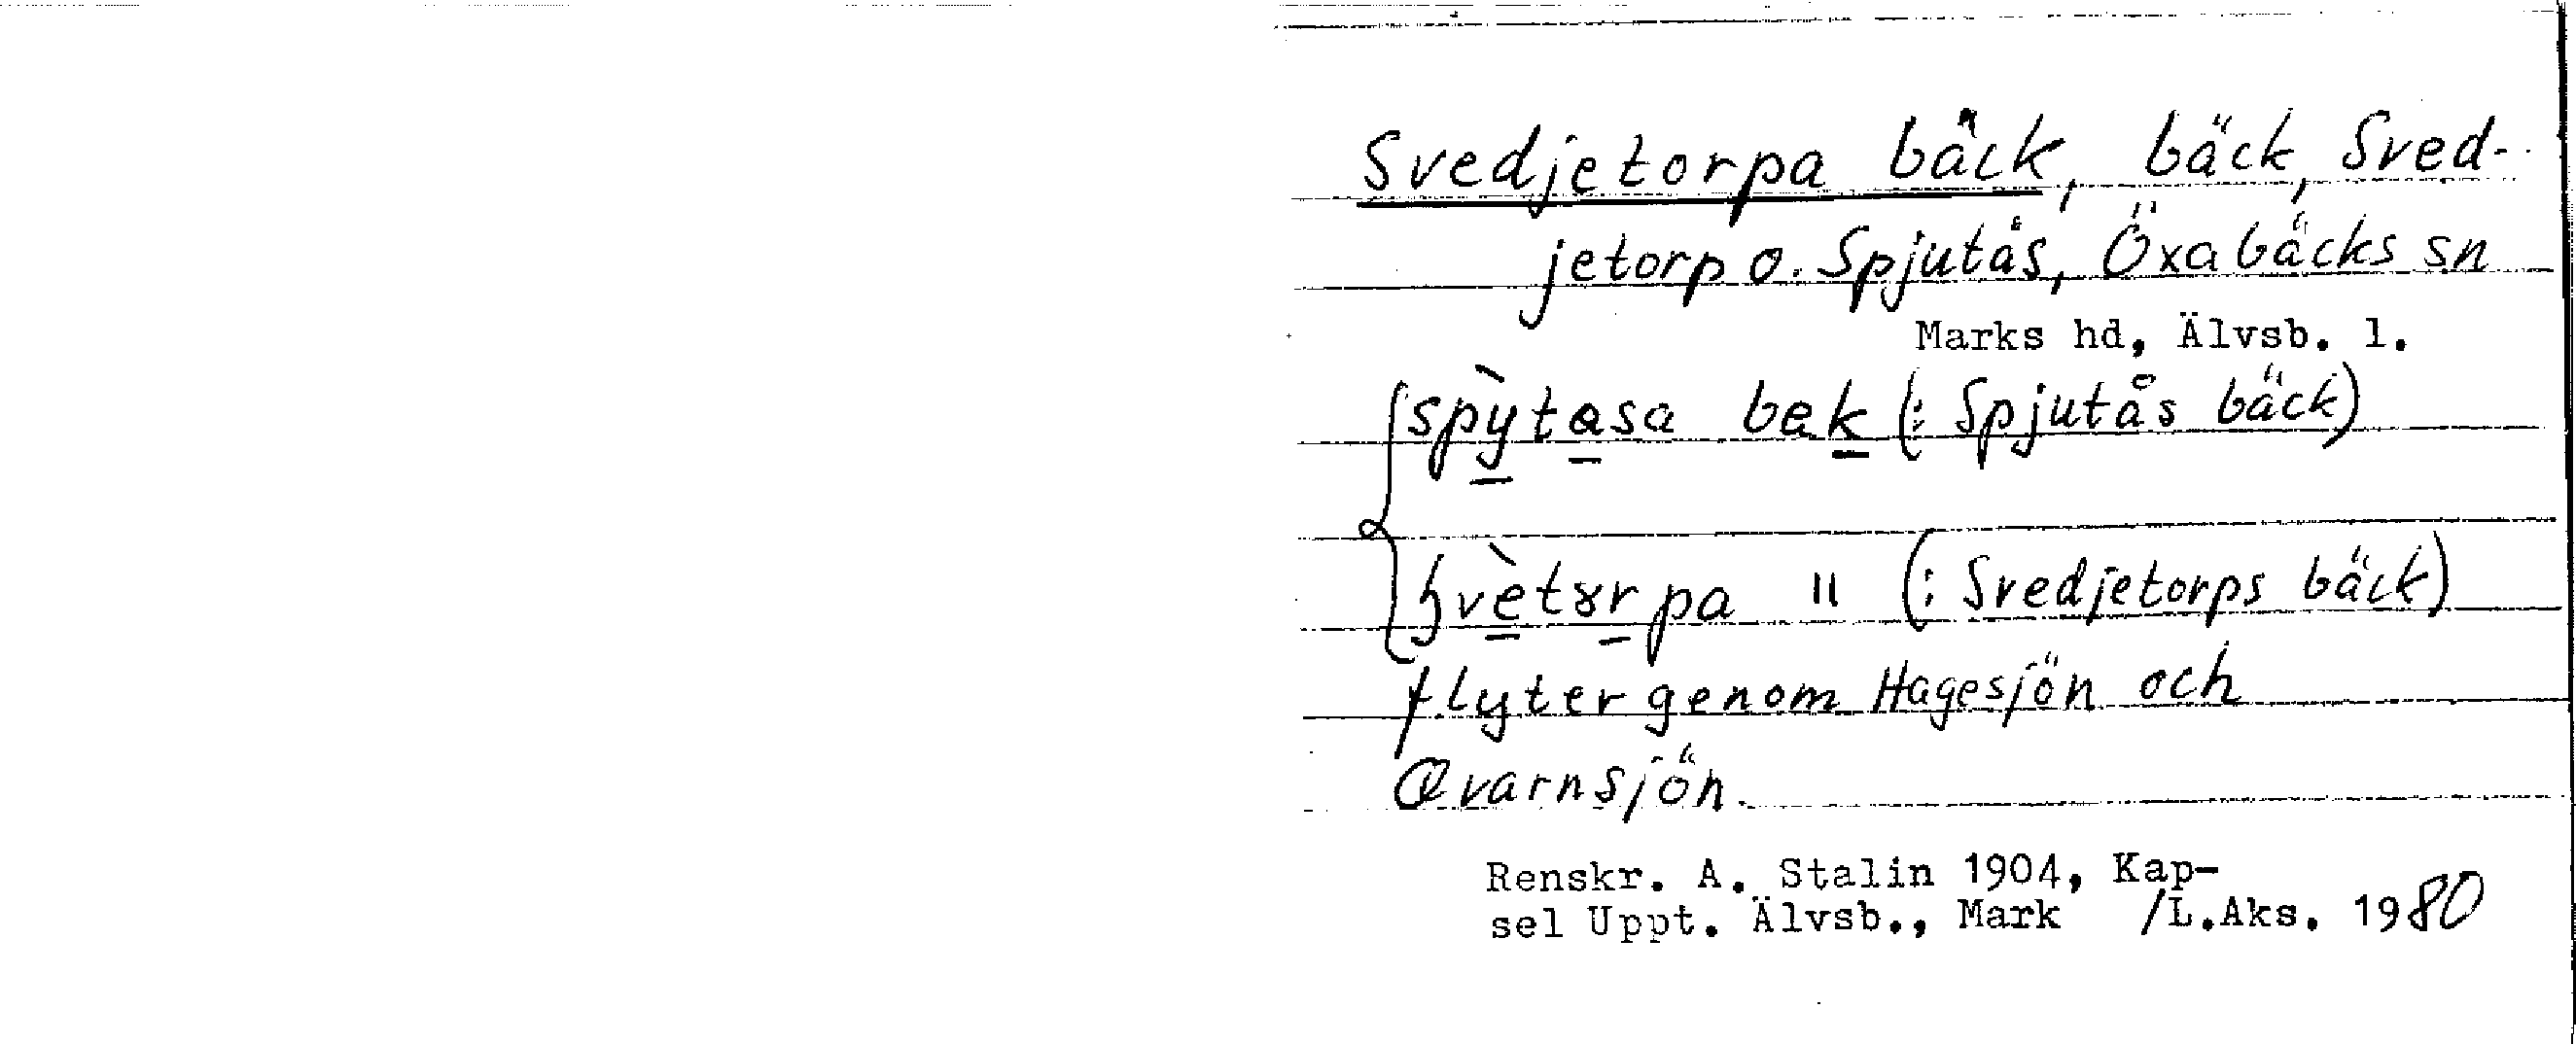 Svedjetorpa bäck, bäck, Sved-
jetorp o. Spjutås, Öxabäcks sn
Marks hd, Älvsb. l.
spỳtasa bak (: Spjutås bäck)
svètɤrpa " (: Svedjetorps bäck)
flyter genom Hagesjön och
Qvarnsjön.
Renskr. A. Stalin 1904, Kap-
sel Uppt. Älvsb., Mark /L.Aks. 1980